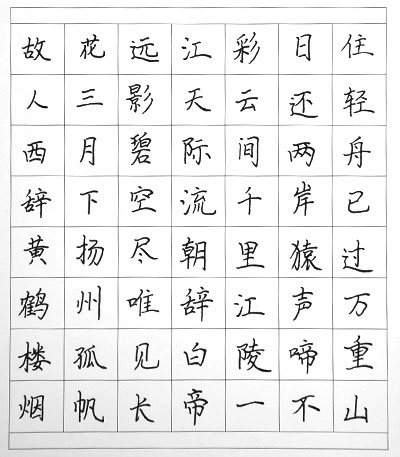 故人西辞黄鹤楼烟
花三月下扬州孤帆
远影碧空尽唯见长
江天际流朝辞白帝
彩云间千里江陵一
日还两岸猿声啼不
住轻舟已过万重山